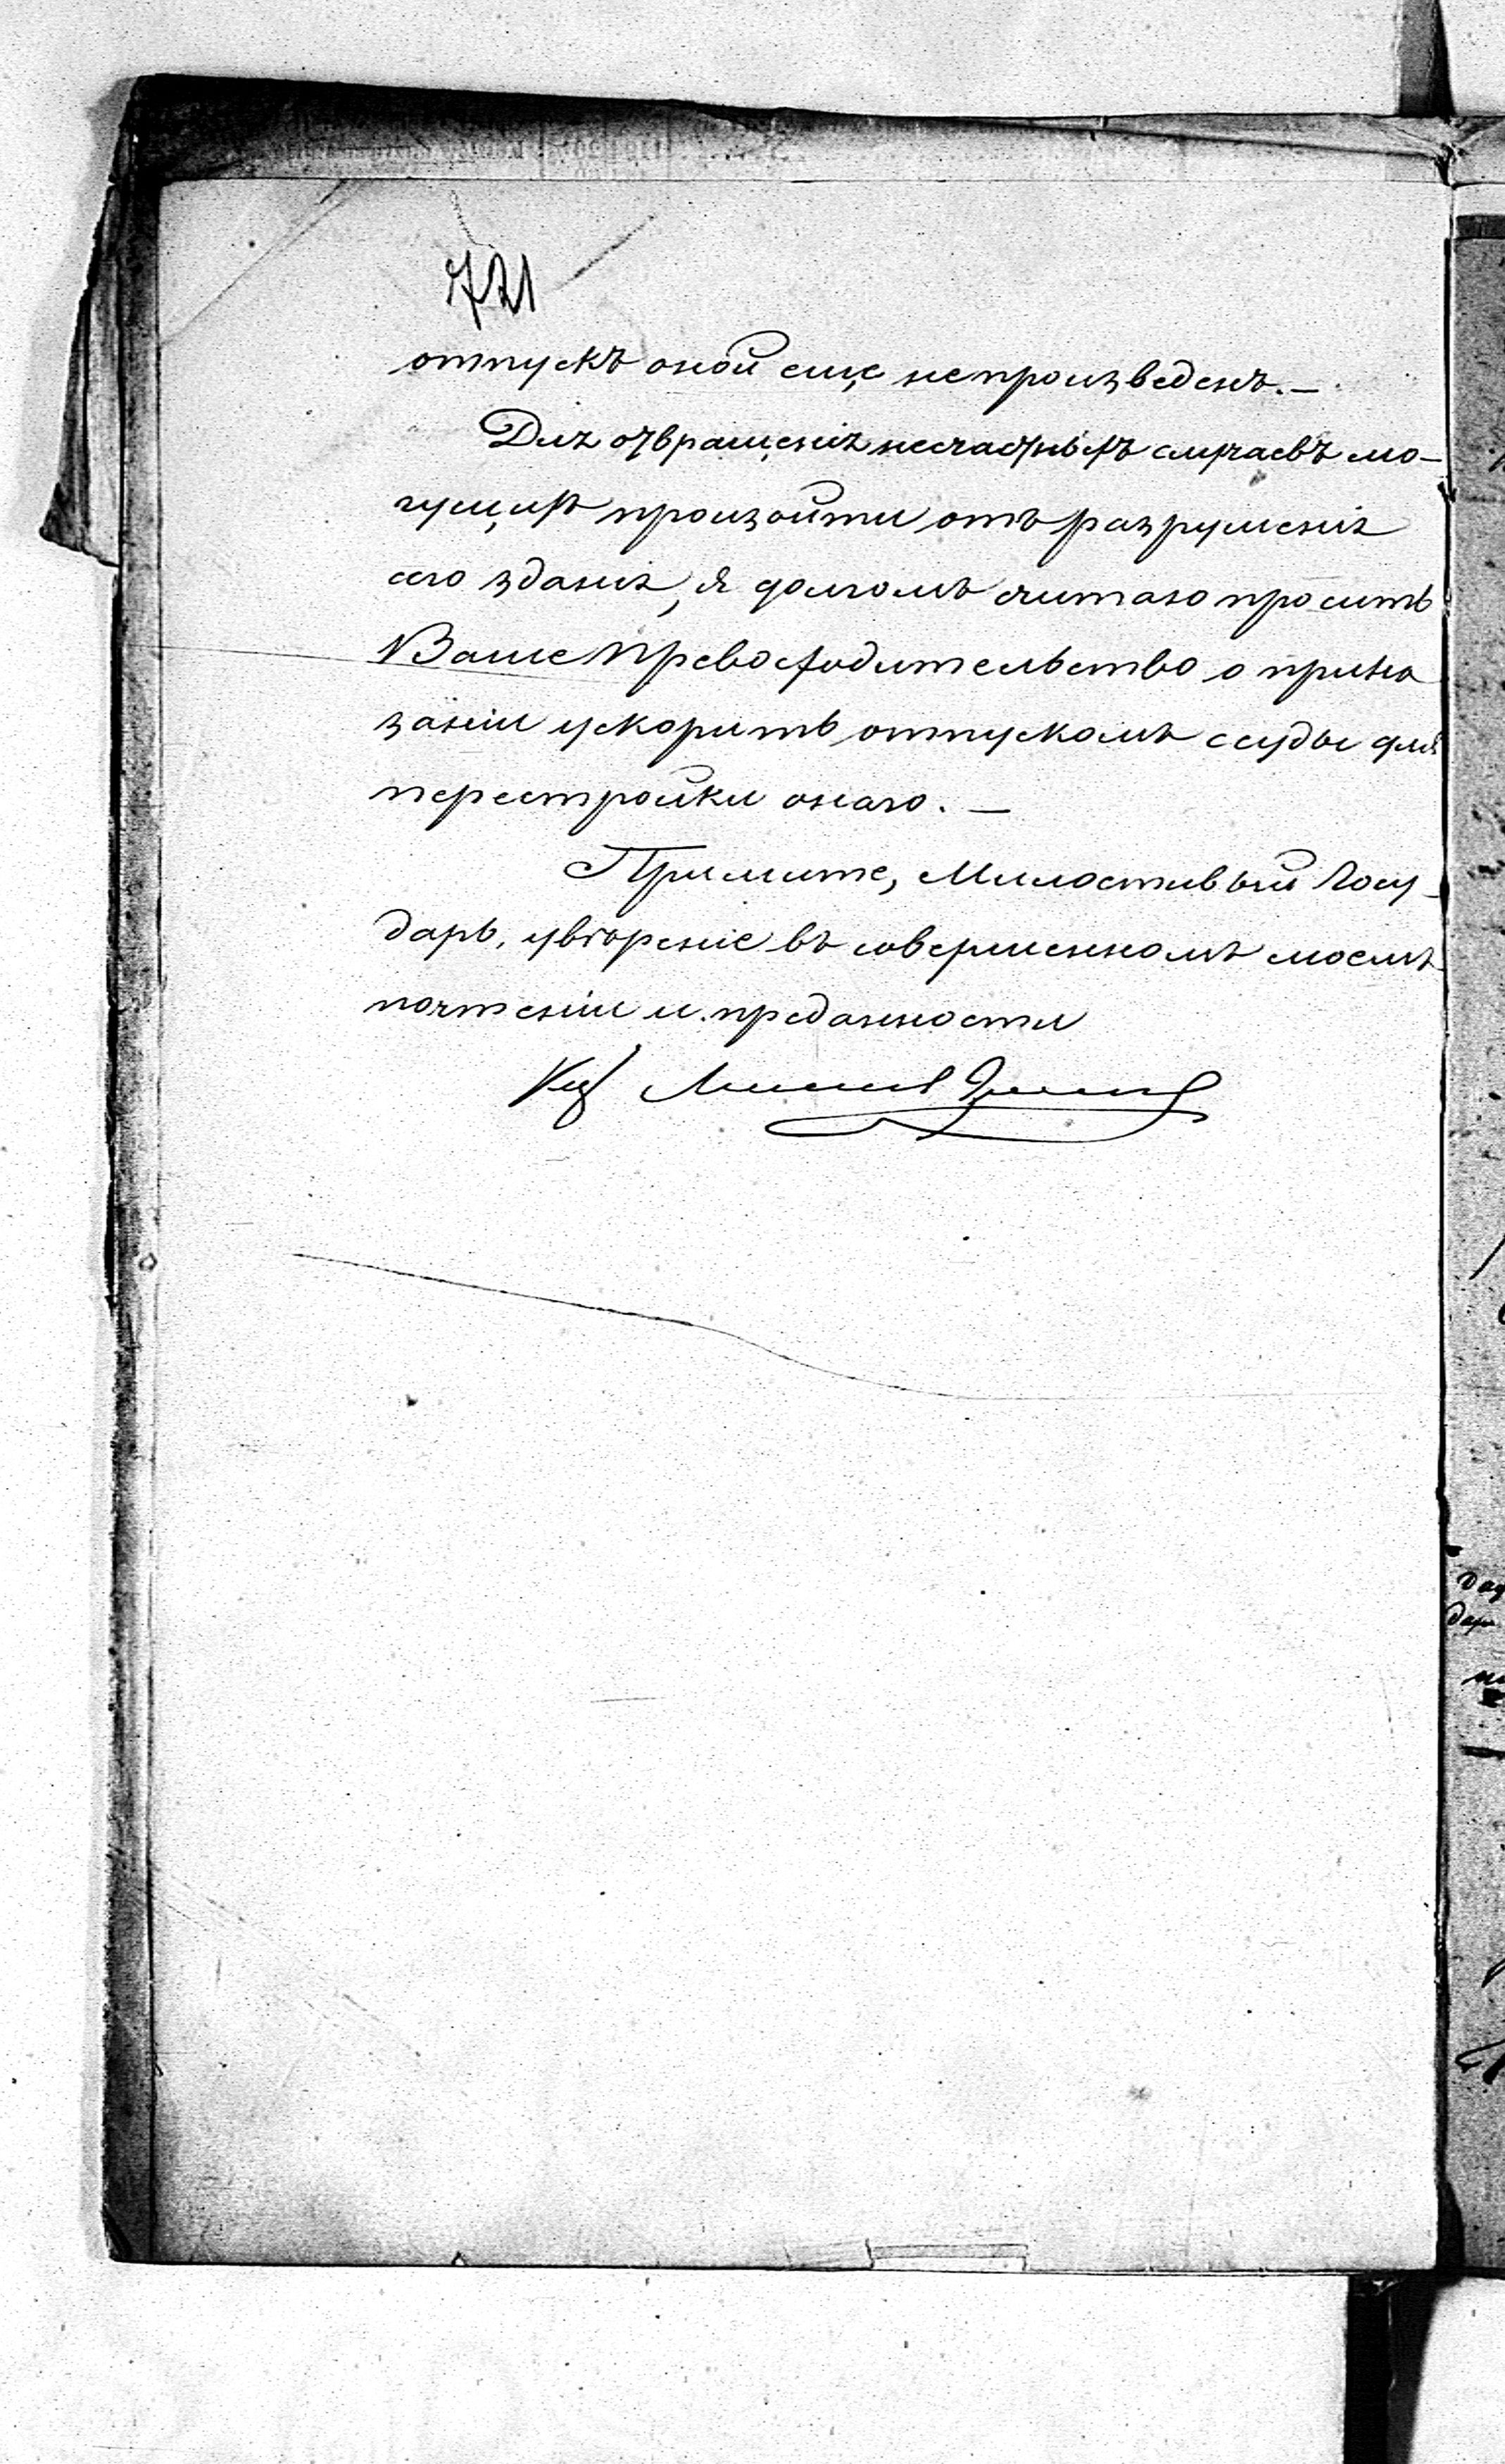 721
отпускъ оной еще непроизведенъ. —
Для отвращенія несчастныхъ случаевъ мо-
гущихъ произойти отъ разрушенія
сего зданія, я долгомъ считаю просить
Ваше Превосходительство о прика
заніи ускорить отпускомъ ссуды для
перестройки онаго. —
Примите, Милостивый Госу-
дарь, увѣреніе въ совершенномъ моемъ
почтеніи и преданности